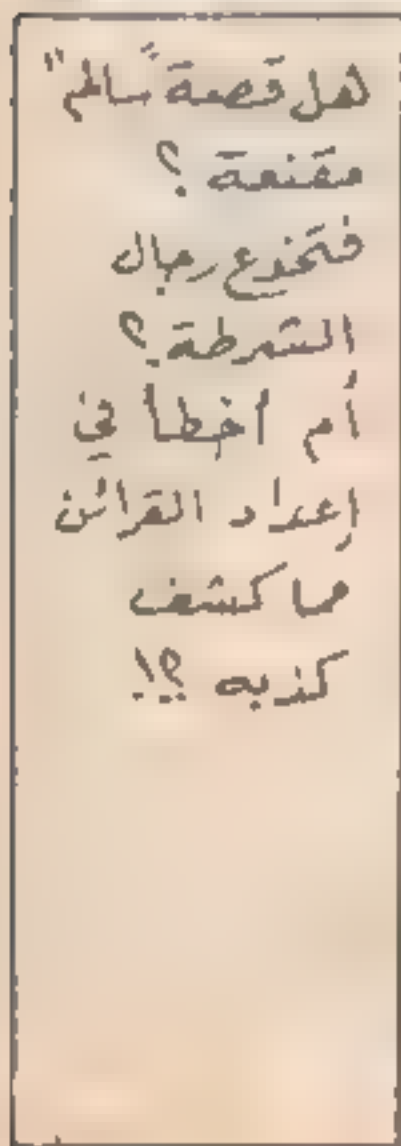 هل قصة "سالم"
مقنعة ؟
فتخدع رجال
الشرطة ؟
أم أخطأ في
إعداد القرائن
مما كشف
كذبه ؟!